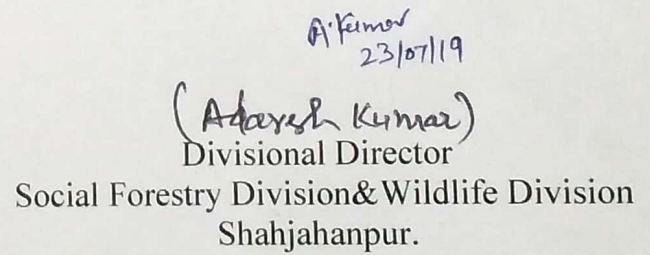 A.Kumar
23/07/19
(Adaresh Kumar)
Divisional Director
Social Forestry Division&Wildlife Division
Shahjahanpur.